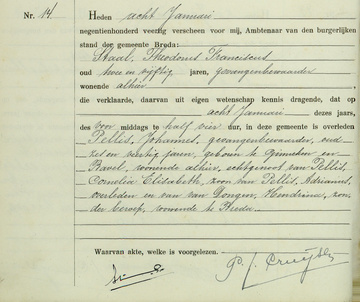 Nr. 14.
Heden acht Januari
negentienhonderd veertig verscheen voor mij, Ambtenaar van den burgerlijken
stand der gemeente Breda:
Staal, Theodorus Franciscus
oud twee en vijftig jaren, gevangenbewaarder
wonende alhier
die verklaarde, daarvan uit eigen wetenschap kennis dragende, dat op
acht Januari dezes jaars,
des voor middags te half vier uur, in deze gemeente is overleden
Pellis, Johannes, gevangenbewaarder, oud
zes en veertig jaren, geboren te Ginneken en
Bavel, wonende alhier, echtgenoot van Pellis,
Cornelia Elisabeth, zoon van Pellis, Adrianus,
overleden en van van Dongen, Hendrina, zon-
der beroep, wonende te Breda.
Waarvan akte, welke is voorgelezen.